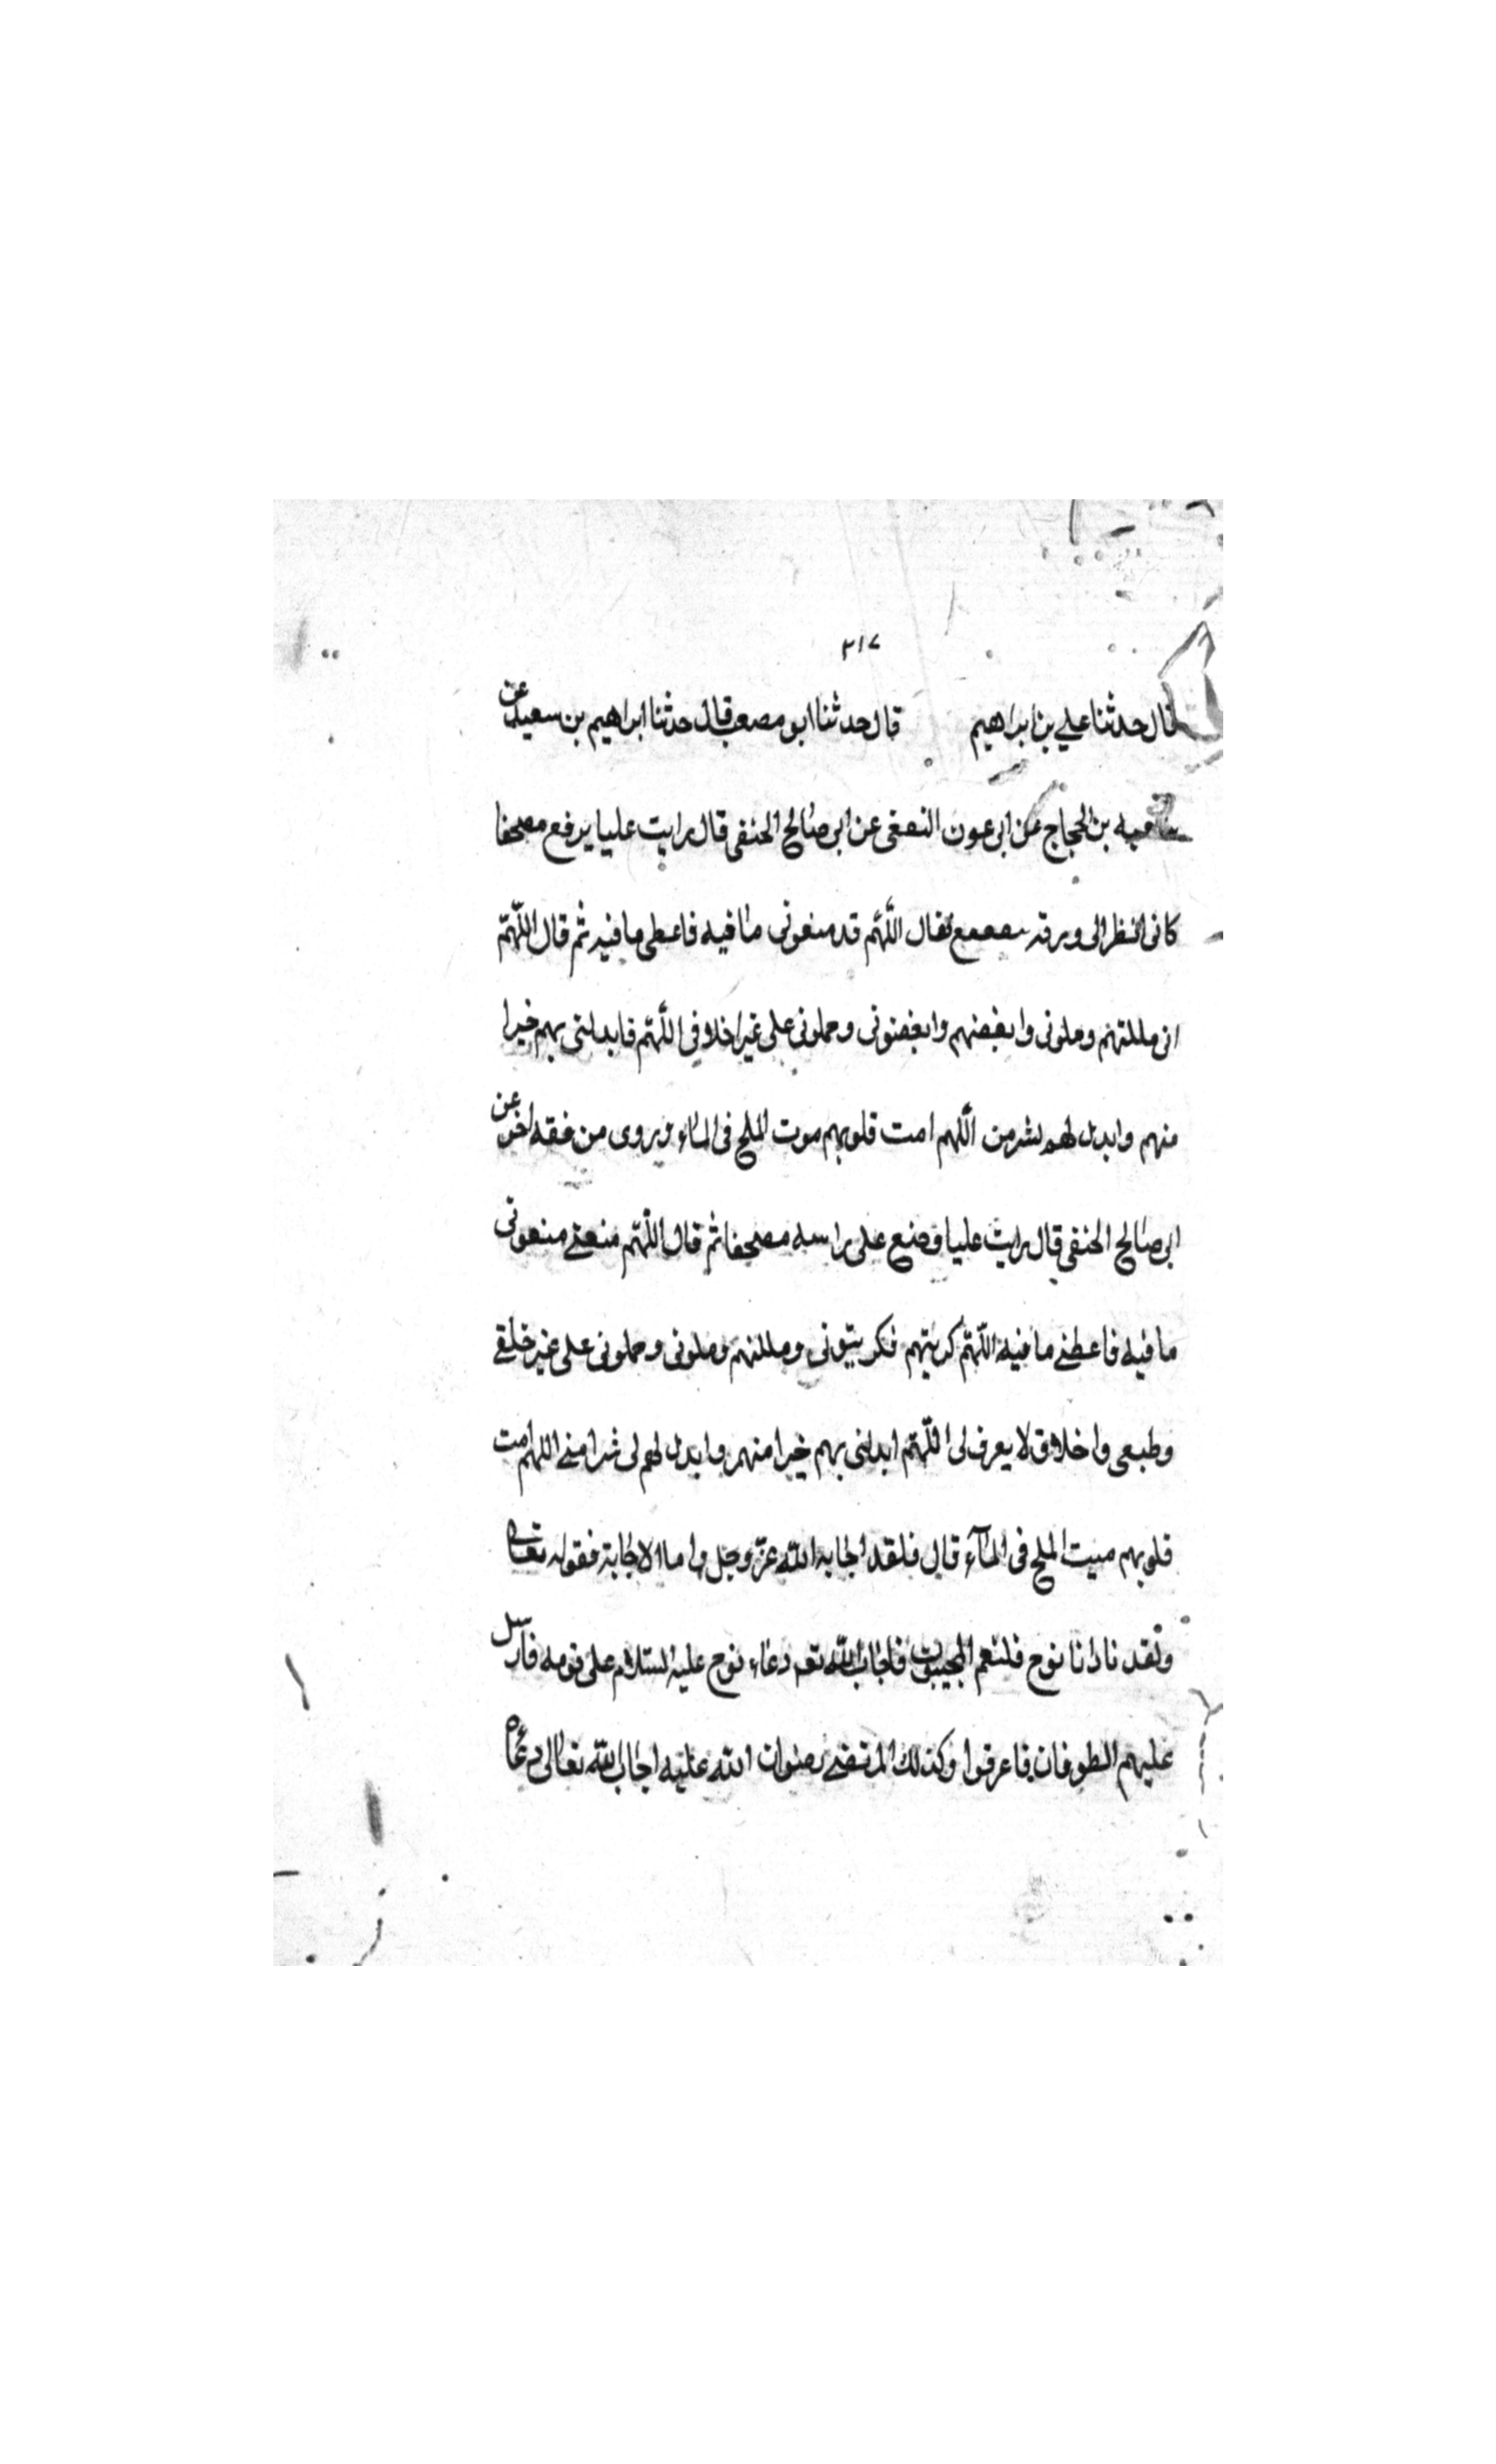 ٣١٧
قال حدثنا علي بن ابراهيم قال حدثنا ابو مصعب قال حدثنا ابراهيم بن سعيد عن
بن الحجاج عن ابى عون الثقفى عن ابى صالح الحنفى قال رايت عليا يرفع مصحفا
كانى انظر الى ورقه فقال اللهم قد منعونى ما فيه فاعطى ما فيه ثم قال اللهم
انى مللتهم وملونى وابغضهم وابغضونى وحملونى على غير اخلاقى اللهم فابدلنى بهم خيرا
منهم وابدل لهم بشر من اللهم امت قلوبهم موت الملح فى الماء وروى من فقه اخر عن
ابى صالح الحنفى قال رايت عليا وضع على راسه مصحفا ثم قال اللهم منعنى منعونى
ما فيه فاعطنى ما فيه اللهم كرهتهم فكرهتونى ومللتهم وملونى وحملونى على غير خلقى
وطبعى واخلاق لا يعرف لى اللهم ابدلنى بهم خيرا منهم وابدل لهم لى شرا منى اللهم امت
قلوبهم ميت الملح فى المآء قال فلقد اجابه الله عزّ وجل واما الاجابة فقوله تعالى
ولقد نادانا نوح فلنعم المجيبون فاجاب الله تعم دعاء نوح عليه السلام على قومه فارسل
عليهم الطوفان فاعرقوا وكذلك المرتضى رضوان الله عليه اجاب الله تعالى دعاه